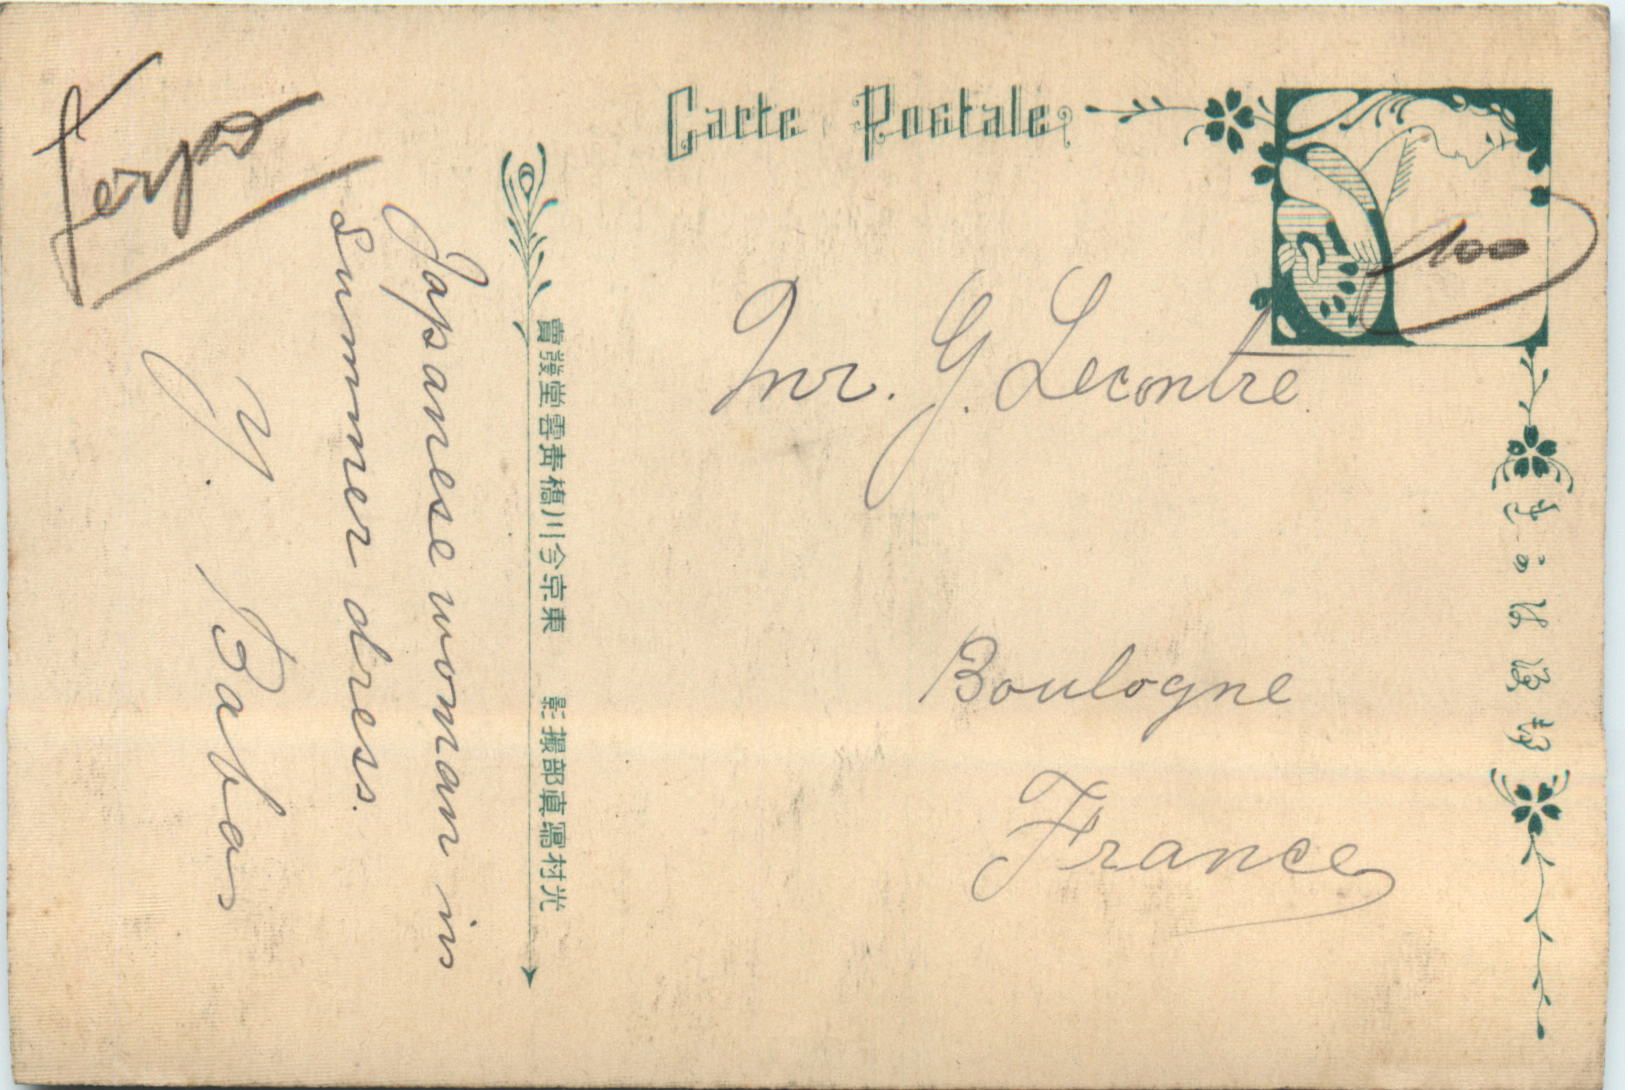 Carte Postale
100
Mr. G. Lecontre
Boulogne
France
郵便はかき
光村寫眞部撮影 東京今川橋青雲堂發賣
Japanese woman in
Summer dress.
Y. Baba